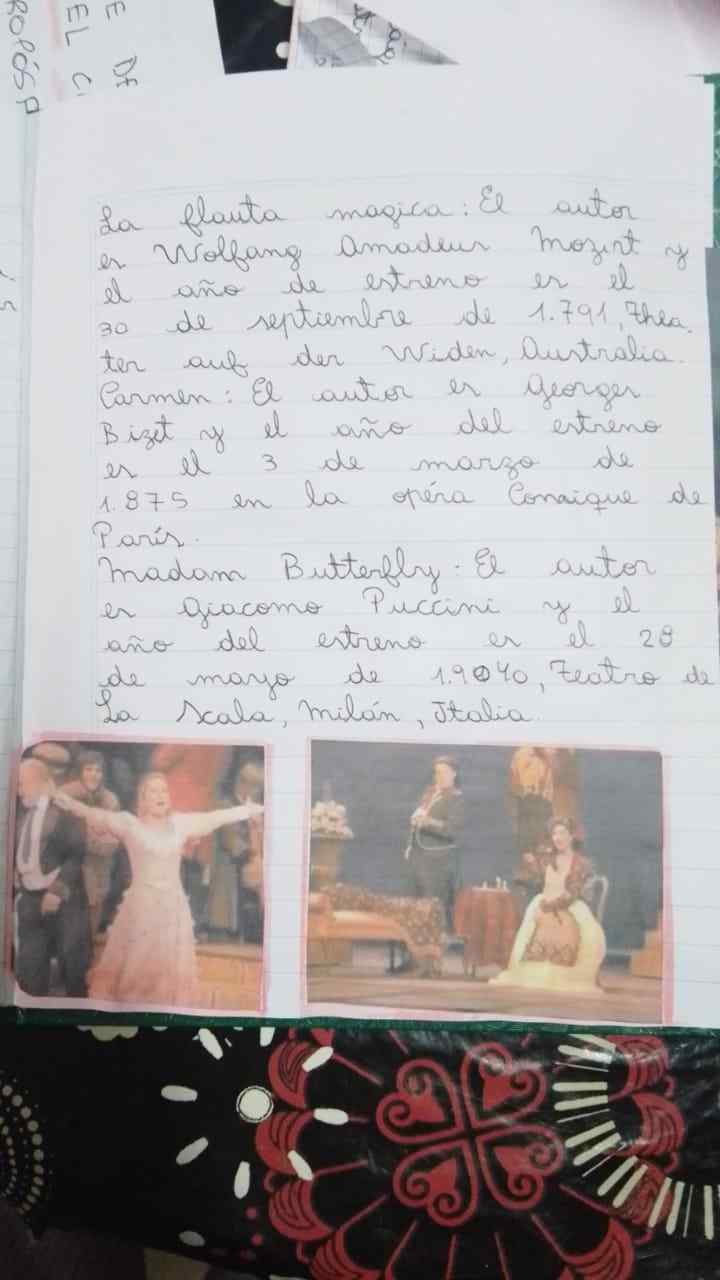 E DE
EL C
ROPÓSP
La flauta magica: El autor
es Wolfang Amadeus Mozart y
el año de estreno es el
30 de septiembre de 1.791, Thea.
ter auf der Widen, Australia.
Carmen: El autor es Georges
Bizet y el año del estreno
es el 3 de marzo de
1.875 en la opéra Comique de
París.
Madam Butterfly: El autor
es Giacomo Puccini y el
año del estreno es el 28
de mayo de 1.9040, Teatro de
La Scala, Milán, Italia.